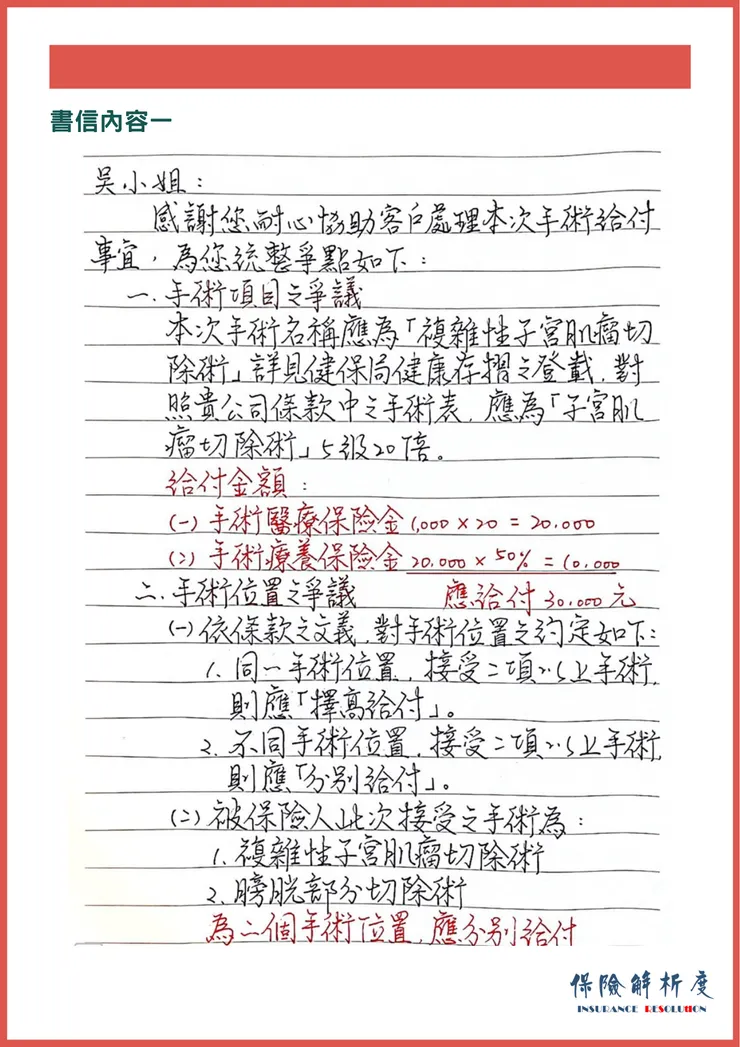 書信內容一
吳小姐：
感謝您耐心協助客戶處理本次手術給付
事宜，為您統整爭點如下：
一、手術項目之爭議
本次手術名稱應為「複雜性子宮肌瘤切
除術」詳見健保局健康存摺之登載，對
照貴公司條款中之手術表，應為「子宮肌
瘤切除術」5級20倍。
給付金額：
(一)手術醫療保險金1,000×20=20,000
(二)手術療養保險金20,000×50%=10,000
應給付30,000元
二、手術位置之爭議
(一)依條款之文義，對手術位置之約定如下：
1. 同一手術位置，接受二項以上手術，
則應「擇高給付」。
2. 不同手術位置，接受二項以上手術，
則應「分別給付」。
(二)被保險人此次接受之手術為：
1. 複雜性子宮肌瘤切除術
2. 膀胱部分切除術
為二個手術位置，應分別給付
保險解析度
INSURANCE RESOLUTION